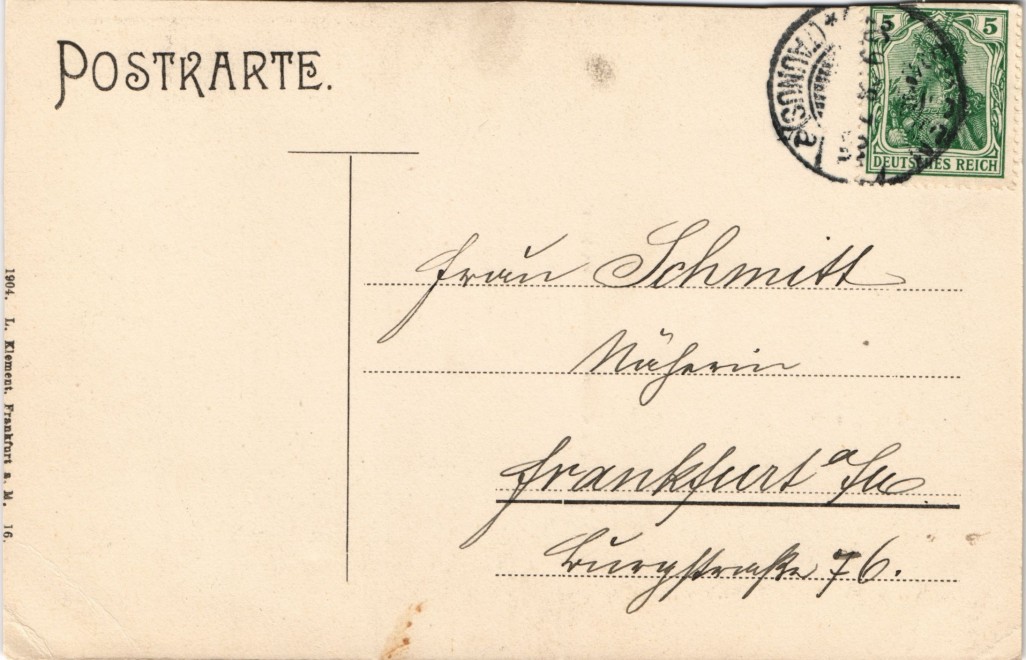 POSTKARTE.
5 5
DEUTSCHES REICH
(TAUNUS)
Frau Schmitt
Näherin
Frankfurt a/M
Burgstraße 76.
1904. L. Klement, Frankfurt a. M. 16.